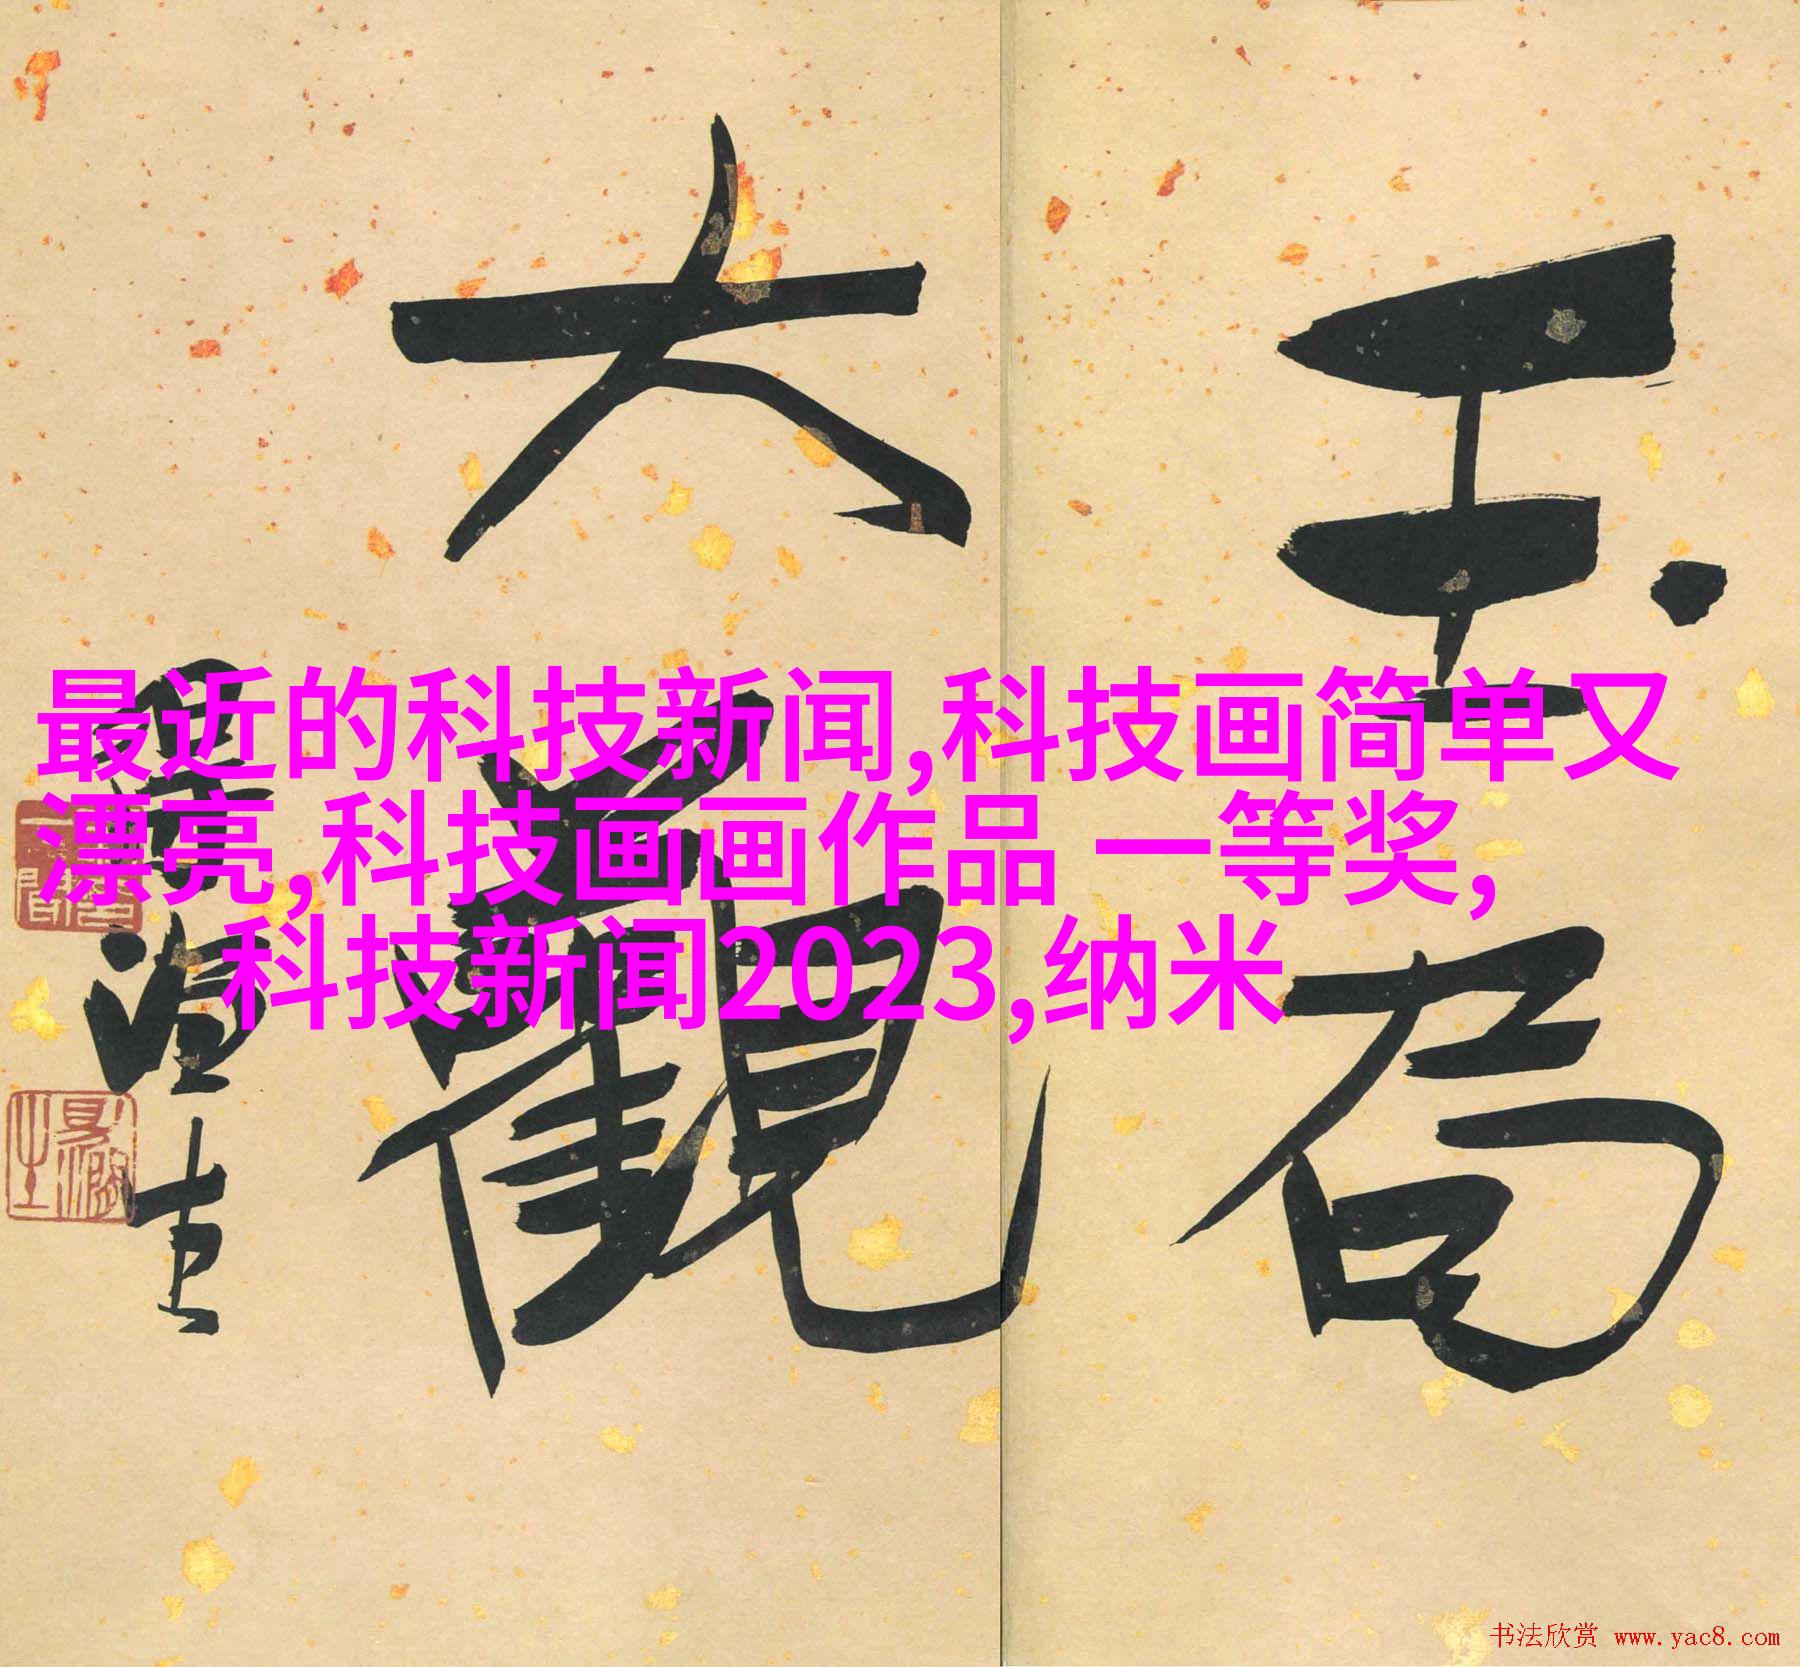 玉局
大觀
最近的科技新闻,科技画简单又
漂亮,科技画画作品 一等奖,
科技新闻2023,纳米
书法欣赏 www.yac8.com